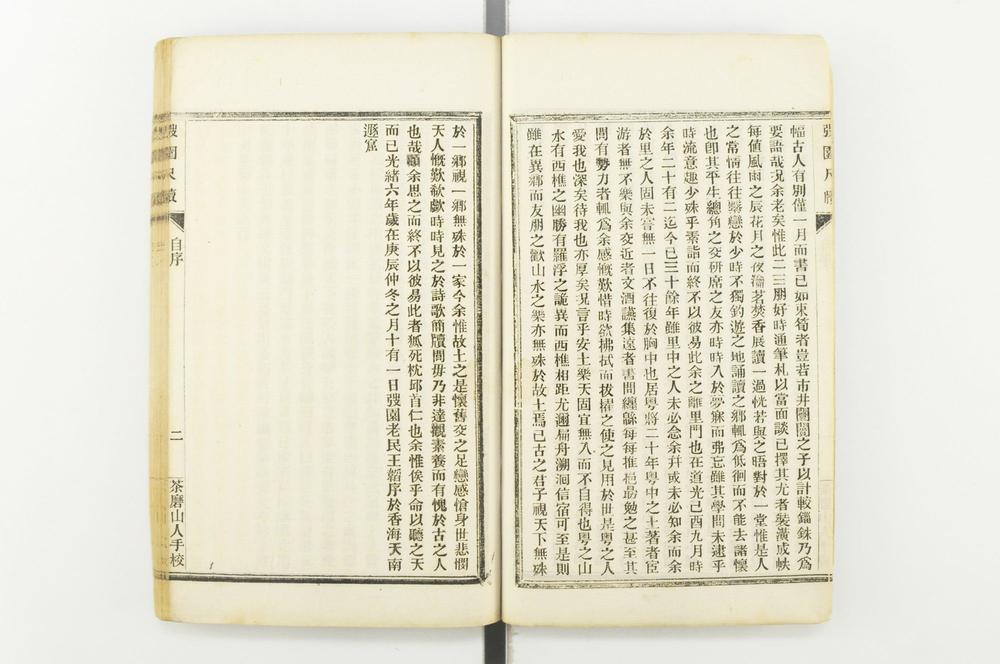 弢園尺牘
幅古人有別僅一月而書已如束筍者豈若市井闤闠之子以計較錙銖乃爲
要語哉况余老矣惟此二三朋好時通筆札以當面談已擇其尤者裝潢成帙
每値風雨之辰花月之夜瀹茗焚香展讀一過恍若與之晤對於一堂惟是人
之常情往往繫戀於少時不獨釣遊之地誦讀之鄉輒爲低徊而不能去諸懷
也卽其平生總角之交硏席之友亦時時入於夢寐而弗忘雖其學問未逮乎
時流意趣少殊乎素詣而終不以彼易此余之離里門也在道光己酉九月時
余年二十有二迄今已三十餘年雖里中之人未必念余幷或未必知余而余
於里之人固未嘗無一日不往復於胸中也居粵將二十年粵中之士著者宦
游者無不樂與余交近者文酒讌集遠者書問纏緜每每推挹勗勉之甚至其
間有勢力者輒爲余感慨歎惜時欲拂拭而拔擢之使之見用於世是粵之人
愛我也深矣待我也亦厚矣况言乎安土樂天固宜無入而不自得也粵之山
水有西樵之幽勝有羅浮之詭異而西樵相距尤邇扁舟溯洄信宿可至是則
雖在異鄉而友朋之歡山水之樂亦無殊於故土焉已古之君子視天下無殊
於一鄉視一鄉無殊於一家今余惟故土之是懷舊交之足戀感愴身世悲憫
天人慨歎欷歔時時見之於詩歌簡牘間毋乃非達觀素養而有愧於古之人
也哉顧余思之而終不以彼易此者狐死枕邱首仁也余惟俟乎命以聽之天
而已光緒六年歲在庚辰仲冬之月十有一日弢園老民王韜序於香海天南
遯窟
弢園尺牘
自序
二
茶磨山人手校